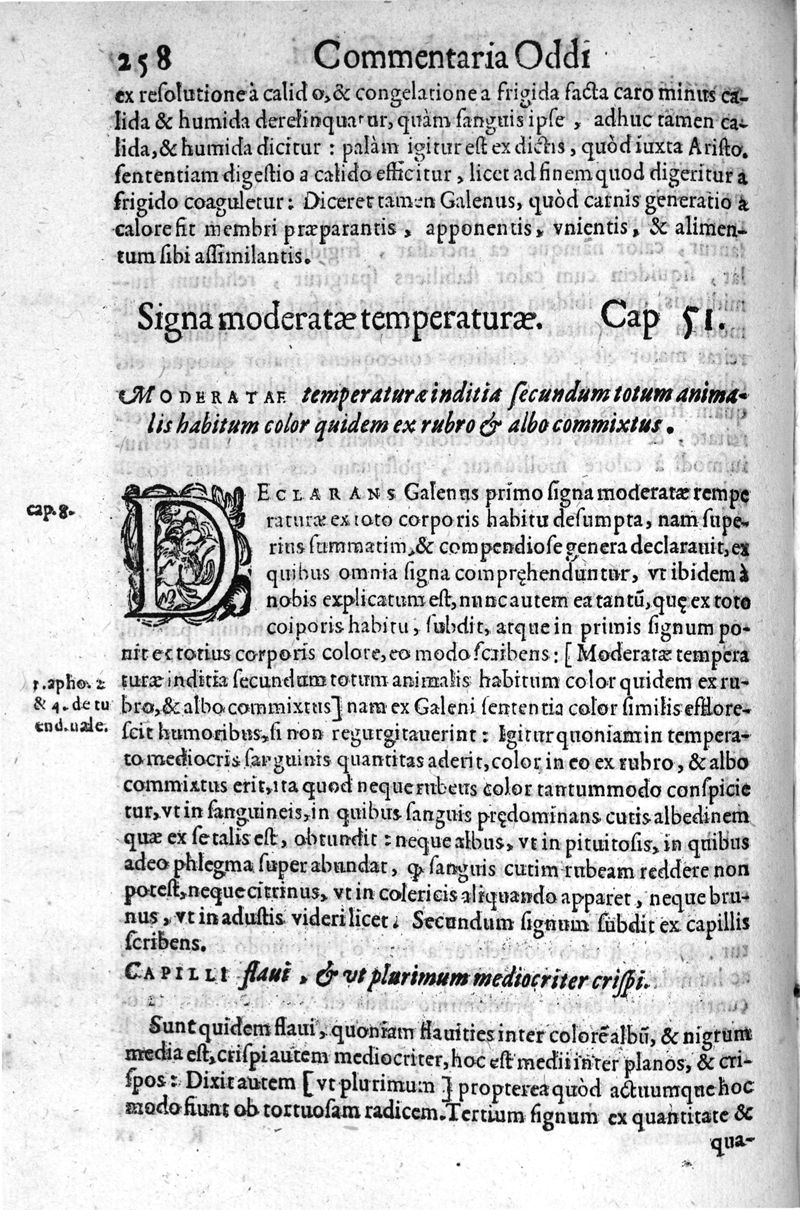 258 Commentaria Oddi
ex resolutione à calido, & congelatione a frigida facta caro minus ca-
lida & humida derelinquatur, quàm sanguis ipse, adhuc tamen ca-
lida, & humida dicitur : palàm igitur est ex dictis, quòd iuxta Aristo.
sententiam digestio a calido efficitur, licet ad finem quod digeritur a
frigido coaguletur: Diceret tamen Galenus, quòd carnis generatio à
calore fit membri præparantis, apponentis, vnientis, & alimen-
tum sibi assimilantis.
Signa moderatæ temperaturæ. Cap 51.
MODERATAE temperaturæ inditia secundum totum anima-
lis habitum color quidem ex rubro & albo commixtus.
cap. 8.
DECLARANS Galenus primo signa moderatæ tempe
raturæ ex toto corporis habitu desumpta, nam supe-
rius summatim, & compendiose genera declarauit, ex
quibus omnia signa compręhenduntur, vt ibidem à
nobis explicatum est, nunc autem ea tantũ, quę ex toto
corporis habitu, subdit, atque in primis signum po-
nit ex totius corporis colore, eo modo scribens: [Moderatæ tempera
1. apho. 2
& 4. de tu
end. uale.
turæ inditia secundum totum animalis habitum color quidem ex ru-
bro, & albo commixtus] nam ex Galeni sententia color similis efflore-
scit humoribus, si non regurgitauerint: Igitur quoniam in tempera-
to mediocris sanguinis quantitas aderit, color in eo ex rubro, & albo
commixtus erit, ita quod neque rubeus color tantummodo conspicie
tur, vt in sanguineis, in quibus sanguis prędominans cutis albedinem
quæ ex se talis est, obtundit : neque albus, vt in pituitosis, in quibus
adeo phlegma superabundat, ꝙ sanguis cutim rubeam reddere non
potest, neque citrinus, vt in colericis aliquando apparet, neque bru-
nus, vt in adustis videri licet. Secundum signum subdit ex capillis
scribens.
CAPILLI flaui, & vt plurimum mediocriter crispi.
Sunt quidem flaui, quoniam flauities inter colorẽ albũ, & nigrum
media est, crispi autem mediocriter, hoc est medii inter planos, & cri-
spos: Dixit autem [vt plurimum] propterea quòd actuumque hoc
modo fiunt ob tortuosam radicem. Tertium signum ex quantitate &
qua-